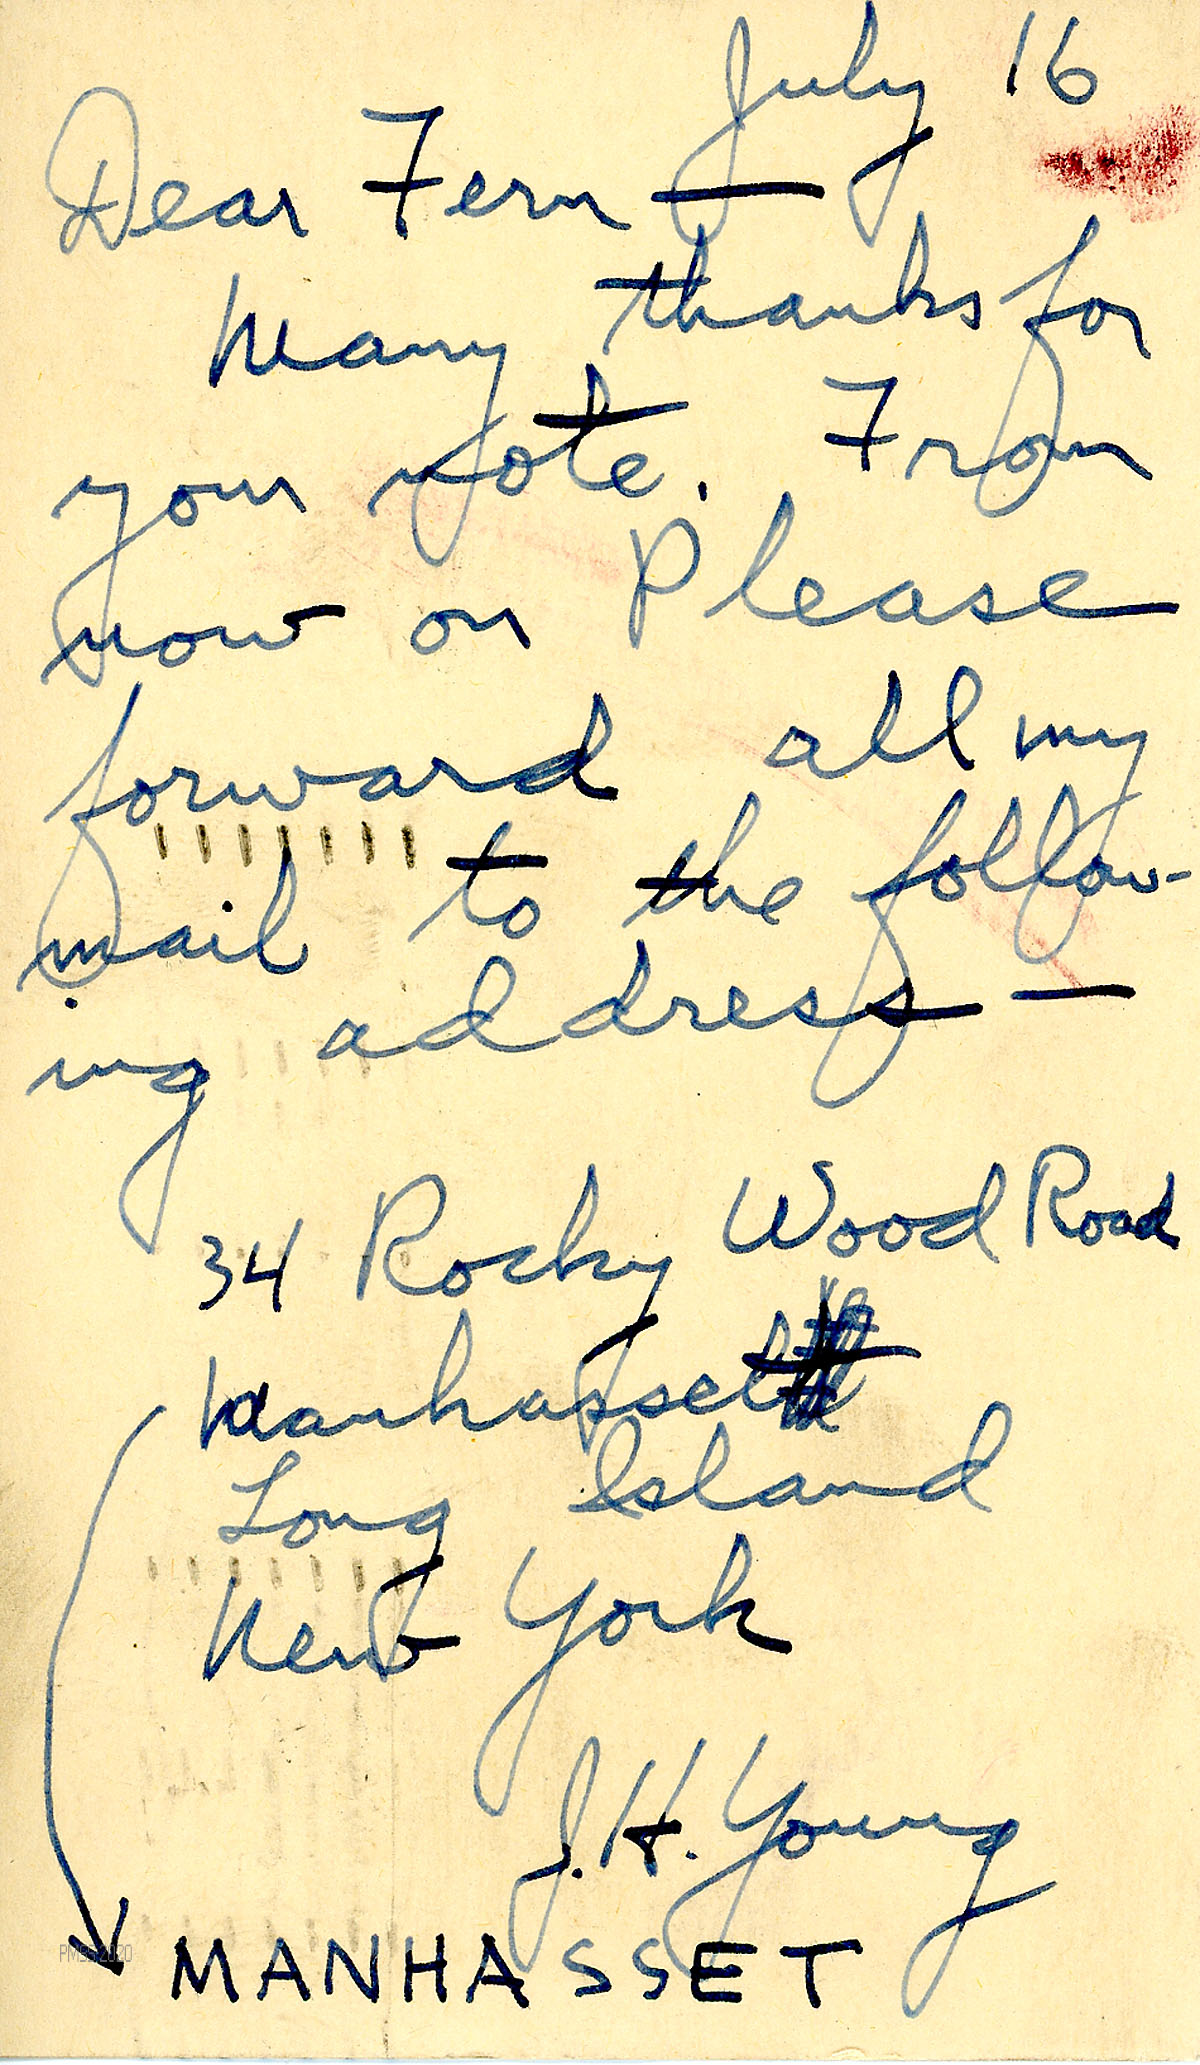 July 16
Dear Fern —
Many thanks for
your note. From
now on Please
forward all my
mail to the follow-
ing address —
34 Rocky Wood Road
Manhasset
Long Island
New York
J. H. Young
MANHASSET
PMSS 2020